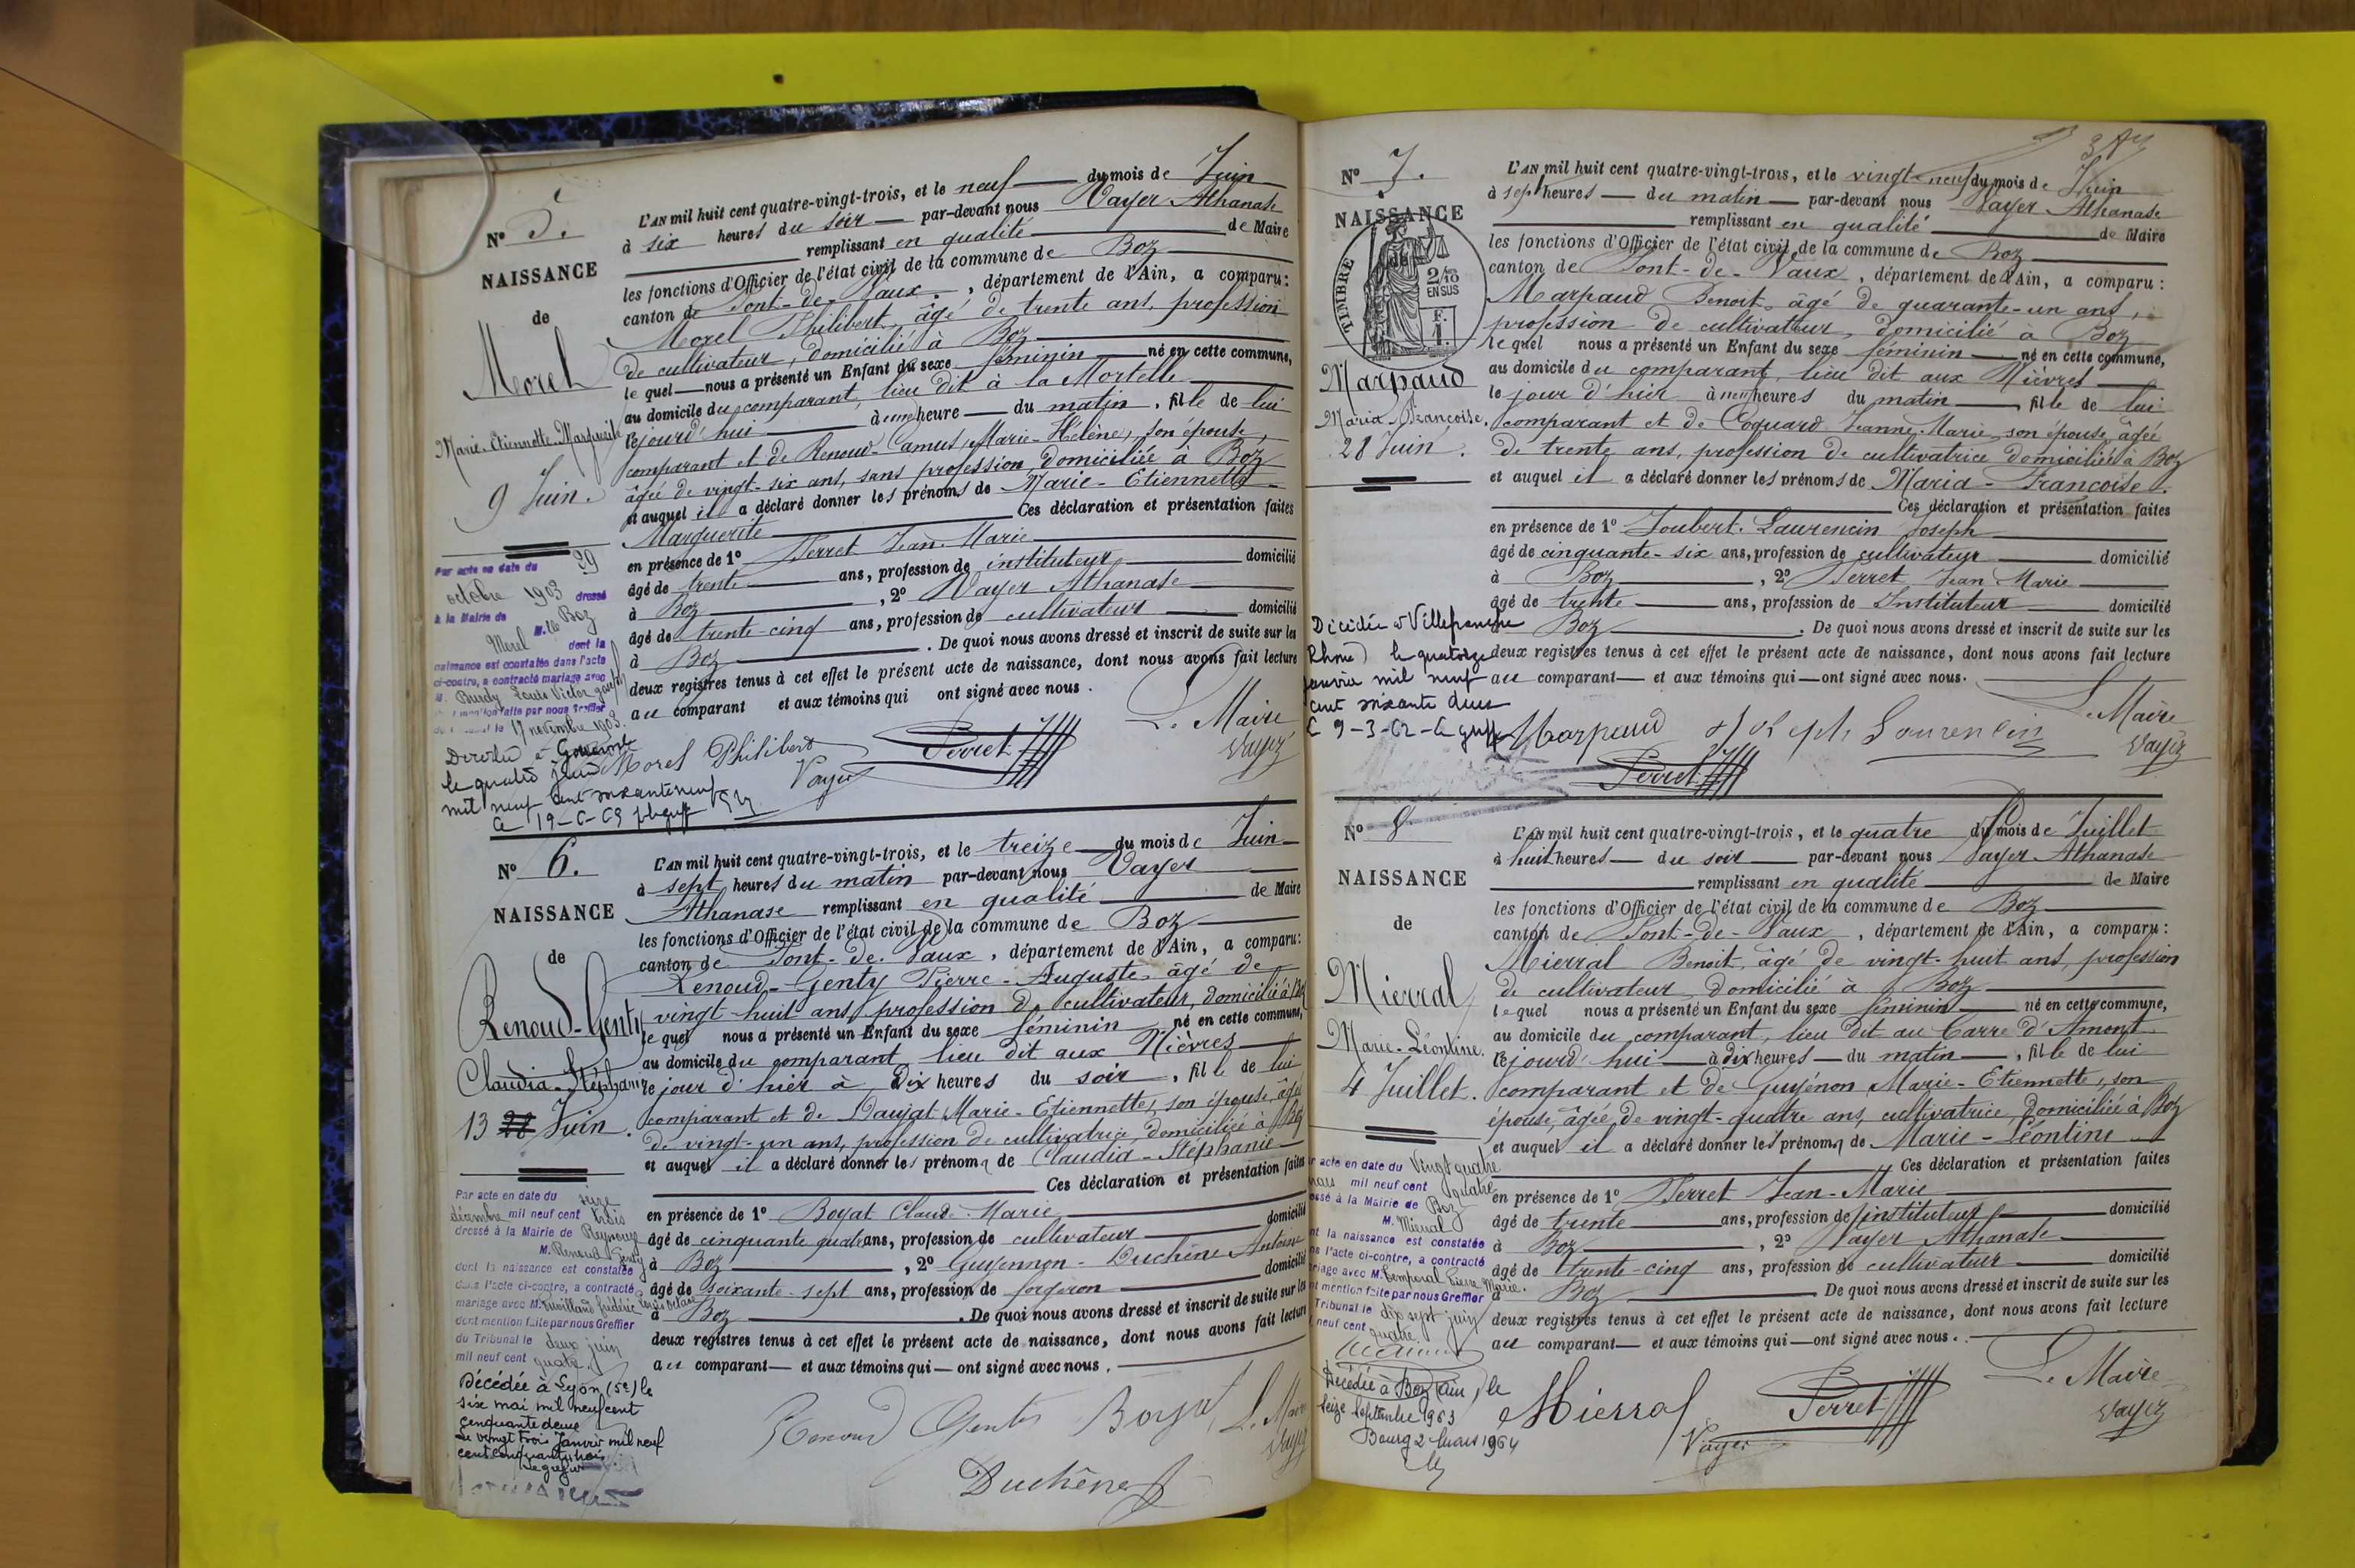 N° 5.
NAISSANCE
de
Morel
Marie-Etiennette-Marguerite
9 Juin.
Par acte en date du 29
octobre 1903 dressé
à la Mairie de Boz
M. lle
Morel dont la
naissance est constatée dans l'acte
ci-contre, a contracté mariage avec
M. Burdy Louis Victor
mention faite par nous Greffier
le 17 novembre 1903.
le quatre juin
mil neuf cent soixante neuf
L'AN mil huit cent quatre-vingt-trois, et le neuf du mois de Juin
à six heures du soir par-devant nous Vayer Athanase
remplissant en qualité de Maire
les fonctions d'Officier de l'état civil de la commune de Boz
canton de Pont-de-Vaux, département de l'Ain, a comparu:
Morel Philibert, âgé de trente ans, profession
de cultivateur, domicilié à Boz
lequel nous a présenté un Enfant du sexe féminin né en cette commune,
au domicile du comparant, lieu dit à la Mortelle
cejourd'hui à une heure du matin, fille de lui
comparant et de Renoud-Camus, Marie-Hélène, son épouse,
âgée de vingt-six ans, sans profession, domiciliée à Boz
et auquel il a déclaré donner les prénoms de Marie-Etiennette
Marguerite Ces déclaration et présentation faites
en présence de 1° Perret Jean-Marie
âgé de trente ans, profession de instituteur domicilié
à Boz, 2° Vayer Athanase
âgé de trente-cinq ans, profession de cultivateur domicilié
à Boz. De quoi nous avons dressé et inscrit de suite sur les
deux registres tenus à cet effet le présent acte de naissance, dont nous avons fait lecture
au comparant et aux témoins qui ont signé avec nous.
Le Maire
Morel Philibert Vayer Perret Vayer
N° 6.
NAISSANCE
de
Renoud-Genty
Claudia-Stéphanie
13 22 Juin.
Par acte en date du seize
décembre mil neuf cent trois
dressé à la Mairie de Reyssouze
M. Renoud Genty
dont la naissance est constatée
dans l'acte ci-contre, a contracté
mariage avec M.
dont mention faite par nous Greffier
du Tribunal le deux juin
mil neuf cent quatre
Décédée à Lyon (5e) le
six mai mil neuf cent
cinquante deux
Le vingt trois Janvier mil neuf
cent cinquante trois
Le greffier
L'AN mil huit cent quatre-vingt-trois, et le treize du mois de Juin
à sept heures du matin par-devant nous Vayer
Athanase remplissant en qualité de Maire
les fonctions d'Officier de l'état civil de la commune de Boz
canton de Pont-de-Vaux, département de l'Ain, a comparu:
Renoud-Genty Pierre-Auguste, âgé de
vingt-huit ans, profession de cultivateur, domicilié à Boz
lequel nous a présenté un Enfant du sexe féminin né en cette commune,
au domicile du comparant, lieu dit aux Nièvres
le jour d'hier à dix heures du soir, fille de lui
comparant et de Daujat Marie-Etiennette, son épouse, âgée
de vingt-un ans, profession de cultivatrice, domiciliée à Boz
et auquel il a déclaré donner les prénoms de Claudia-Stéphanie
Ces déclaration et présentation faites
en présence de 1° Boyat Claude-Marie
âgé de cinquante quatre ans, profession de cultivateur domicilié
à Boz, 2° Guyennon-Duchêne Antoine
âgé de soixante-sept ans, profession de forgeron domicilié
à Boz. De quoi nous avons dressé et inscrit de suite sur les
deux registres tenus à cet effet le présent acte de naissance, dont nous avons fait lecture
au comparant et aux témoins qui ont signé avec nous.
Renoud Genty Boyat Le Maire
Vayer
Duchêne
N° 7.
NAISSANCE
de
TIMBRE
2/10
EN SUS
F.
1.
Marpaud
Maria Françoise.
28 Juin.
Décédée à Villefranche
Rhône) le quatorze
janvier mil neuf
cent soixante deux
L 9-3-62
L'AN mil huit cent quatre-vingt-trois, et le vingt-neuf du mois de Juin
à sept heures du matin par-devant nous Vayer Athanase
remplissant en qualité de Maire
les fonctions d'Officier de l'état civil de la commune de Boz
canton de Pont-de-Vaux, département de l'Ain, a comparu:
Marpaud Benoit, âgé de quarante-un ans,
profession de cultivateur, domicilié à Boz
lequel nous a présenté un Enfant du sexe féminin né en cette commune,
au domicile du comparant, lieu dit aux Nièvres
le jour d'hier à neuf heures du matin, fille de lui
comparant et de Coquard Jeanne-Marie, son épouse, âgée
de trente ans, profession de cultivatrice domiciliée à Boz
et auquel il a déclaré donner les prénoms de Maria-Françoise.
Ces déclaration et présentation faites
en présence de 1° Joubert-Laurencin Joseph
âgé de cinquante-six ans, profession de cultivateur domicilié
à Boz, 2° Perret Jean Marie
âgé de trente ans, profession de Instituteur domicilié
Boz. De quoi nous avons dressé et inscrit de suite sur les
deux registres tenus à cet effet le présent acte de naissance, dont nous avons fait lecture
au comparant et aux témoins qui ont signé avec nous.
Le Maire
Marpaud Joseph Laurencin Vayer
Perret
N° 8
NAISSANCE
de
Mierral
Marie-Léontine.
4 Juillet.
acte en date du Vingt quatre
mars mil neuf cent quatre
dressé à la Mairie de Boz
M. Mierral
dont la naissance est constatée
dans l'acte ci-contre, a contracté
mariage avec M. Temporal Pierre Marie.
dont mention faite par nous Greffier
Tribunal le dix sept juin
neuf cent quatre
Décédée à Boz (Ain) le
seize Septembre 1963
Bourg 2 mars 1964
L'AN mil huit cent quatre-vingt-trois, et le quatre du mois de Juillet
à huit heures du soir par-devant nous Vayer Athanase
remplissant en qualité de Maire
les fonctions d'Officier de l'état civil de la commune de Boz
canton de Pont-de-Vaux, département de l'Ain, a comparu:
Mierral Benoit, âgé de vingt-huit ans, profession
de cultivateur, domicilié à Boz
lequel nous a présenté un Enfant du sexe féminin né en cette commune,
au domicile du comparant, lieu dit au Carre d'Amont
cejourd'hui à dix heures du matin, fille de lui
comparant et de Guyénon Marie-Etiennette, son
épouse, âgée de vingt-quatre ans, cultivatrice, domiciliée à Boz
et auquel il a déclaré donner les prénoms de Marie-Léontine
Ces déclaration et présentation faites
en présence de 1° Perret Jean-Marie
âgé de trente ans, profession de instituteur domicilié
à Boz, 2° Vayer Athanase
âgé de trente-cinq ans, profession de cultivateur domicilié
à Boz De quoi nous avons dressé et inscrit de suite sur les
deux registres tenus à cet effet le présent acte de naissance, dont nous avons fait lecture
au comparant et aux témoins qui ont signé avec nous.
Le Maire
Mierral Vayer Perret Vayer